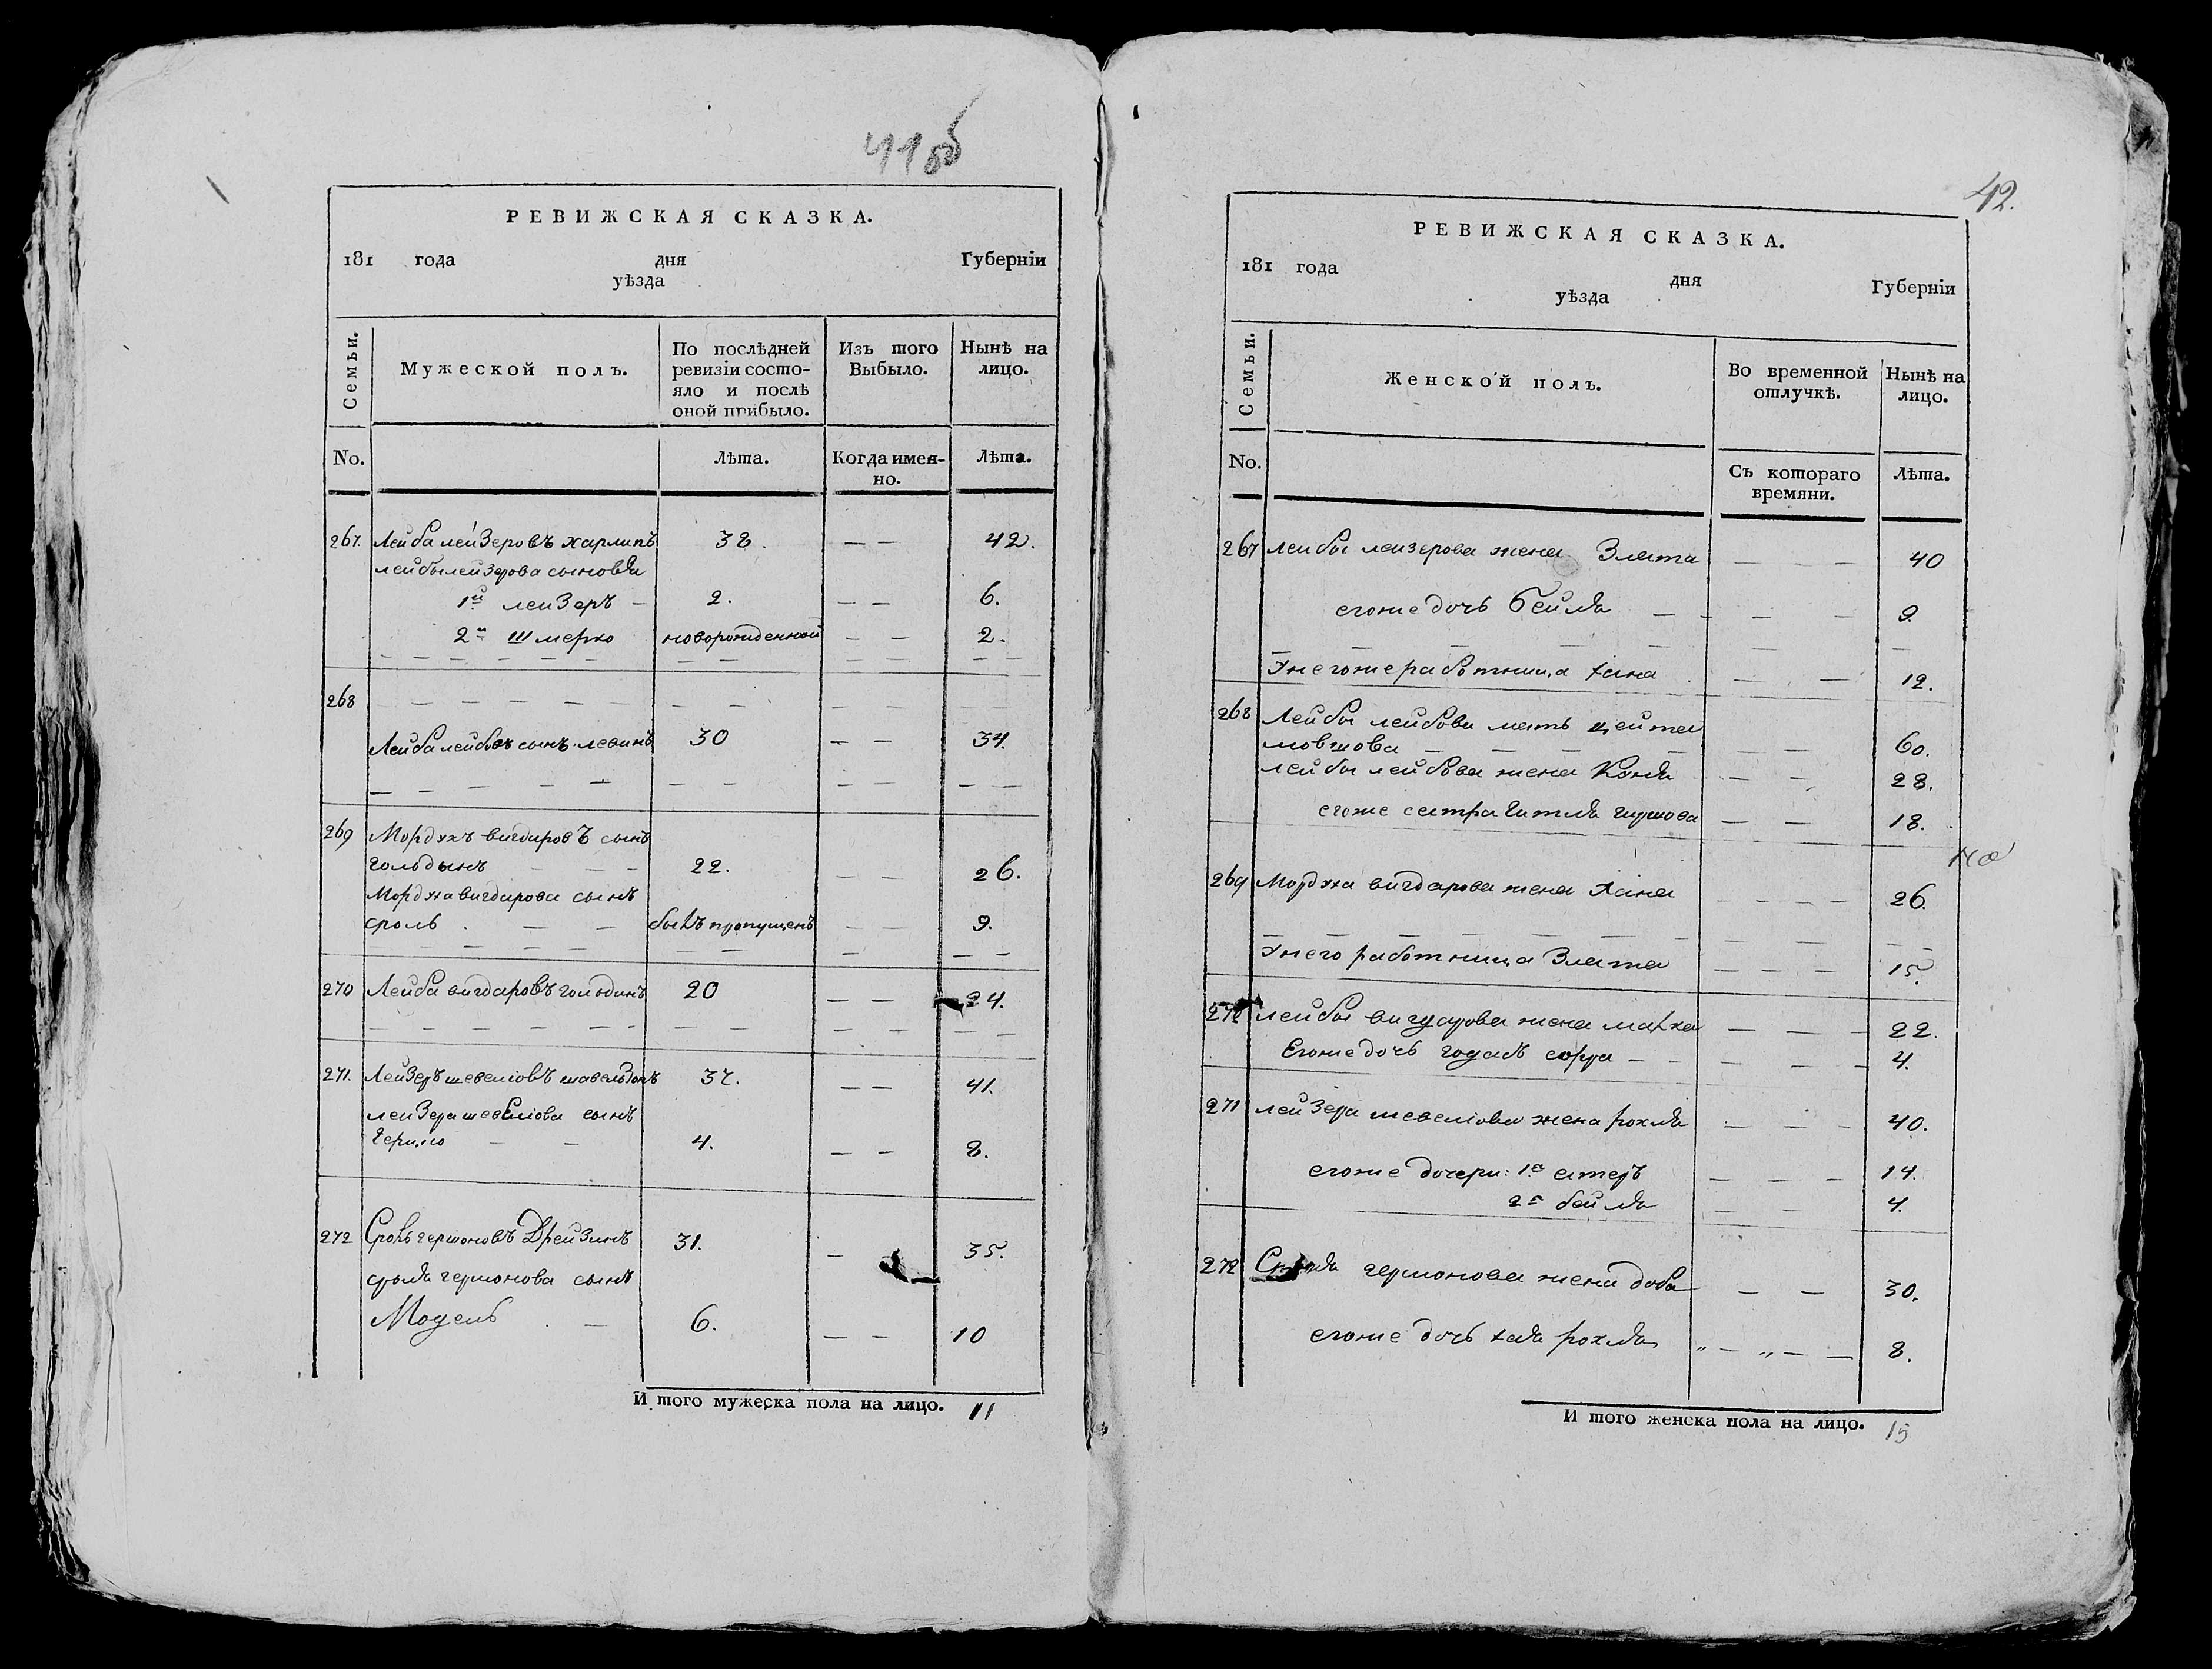 41 об
РЕВИЖСКАЯ СКАЗКА.
181 года дня Губерніи
уѣзда
Семьи.
Мужеской полъ.
По послѣдней ревизіи состояло и послѣ оной прибыло.
Изъ того Выбыло.
Нынѣ на лицо.
No.
Лѣта.
Когда именно.
Лѣта.
267. Лейба лейзеровъ харлипъ 38. — — 42.
лейбы лейзерова сыновья
1й лейзеръ — 2. — — 6.
2й Шмерко новорожденной — — 2.
268
Лейба лейбовъ сынъ левинъ 30 — — 34.
269 Мордухъ вигдировъ сынъ
гольдынъ — — 22. — — 26.
Мордуха вигдарова сынъ
сроль . — — былъ пропущенъ — — 9.
270 Лейба вигдаровъ гольдинъ 20 — — 24.
271. Лейзеръ шевелiовъ 37. — — 41.
лейзера шевелiова сынъ
— — 4. — — 8.
272 Сроль гершоновъ Дрейзинъ 31. — 35.
сроля гершонова сынъ
. — 6. — — 10
И того мужеска пола на лицо. 11
42.
РЕВИЖСКАЯ СКАЗКА.
181 года дня Губерніи
уѣзда
Семьи.
Женской полъ.
Во временной отлучкѣ.
Нынѣ на лицо.
No.
Съ котораго времяни.
Лѣта.
267 лейбы лейзерова жена Злата — — — 40
егоже дочь бейля — — — 9.
У негоже работница хана — — 12.
268 Лейбы лейбова мать цейтел
мовшова — — — — — — 60.
лейбы лейбова жена Коня — — 28.
егоже сестра гитля гиршова — — 18.
269 Мордуха вигдарова жена хана — — — — 26.
У него работница Злата — — — 15.
270 лейбы вигдарова жена малка — — — 22.
Егоже дочь годасъ сорра — — — — — 4.
271 лейзера шевелiова жена рохля — — — 40.
егоже дочери: 1я естеръ — — — 14.
2я бейля — — 4.
272 Сроля гершонова жена доба — — 30.
егоже дочь хая рохля „ — „ — — 8.
И того женска пола на лицо. 15